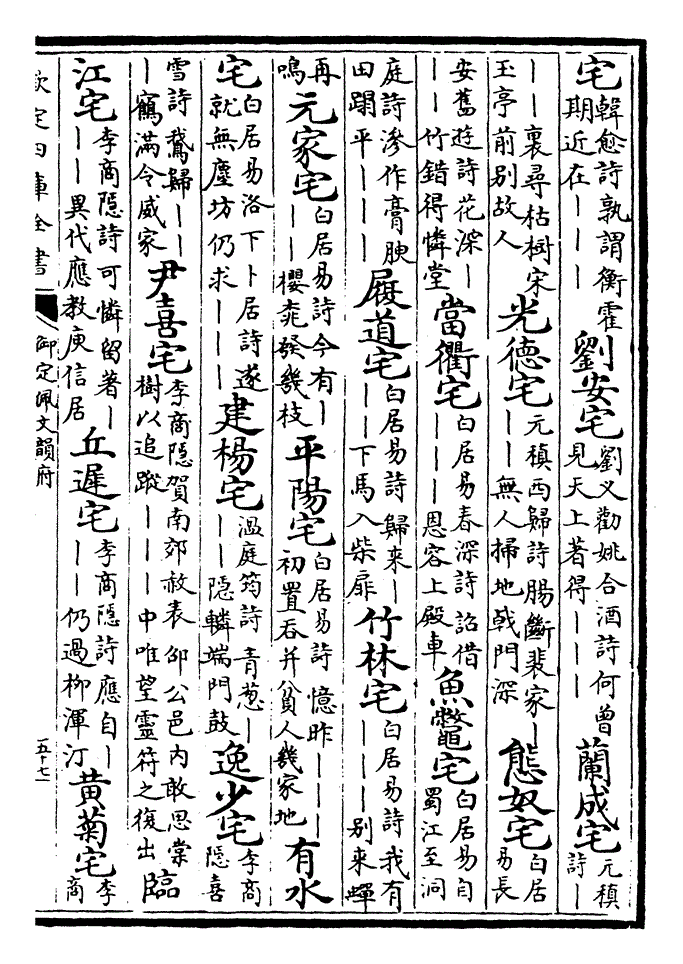 宅韓愈詩孰謂衡霍期近在｜｜｜劉安宅劉义勸姚合酒詩何曾見天上著得｜｜｜蘭成宅元稹詩｜
｜｜裏尋枯樹宋玉亭前别故人光德宅元稹西歸詩腸斷裴家｜｜｜無人掃地戟門深態奴宅白居易長
安舊遊詩花深｜｜｜竹錯得憐堂當衢宅白居易春深詩詔借｜｜｜恩容上殿車魚鼈宅白居易自蜀江至洞
庭詩滲作膏腴田蹋平｜｜｜履道宅白居易詩歸來｜｜｜下馬入柴扉竹林宅白居易詩我有｜｜｜别來蟬
再鳴元家宅白居易詩今有｜｜｜櫻桃發幾枝平陽宅白居易詩憶昨｜｜｜初置吞并貧人幾家地有水
宅白居易洛下卜居詩遂就無塵坊仍求｜｜｜建楊宅溫庭筠詩青葱｜｜｜隐轔端門鼓逸少宅李商隐喜
雪詩鵝歸｜｜｜鶴滿令威家尹喜宅李商隱賀南郊赦表邵公邑内敢思棠樹以追蹤｜｜｜中唯望靈符之復出臨
江宅李商隱詩可憐留著｜｜｜異代應教庾信居丘遲宅李商隱詩應自｜｜｜仍過柳渾汀黄菊宅李商
欽定四庫全書
御定佩文韻府
五十七